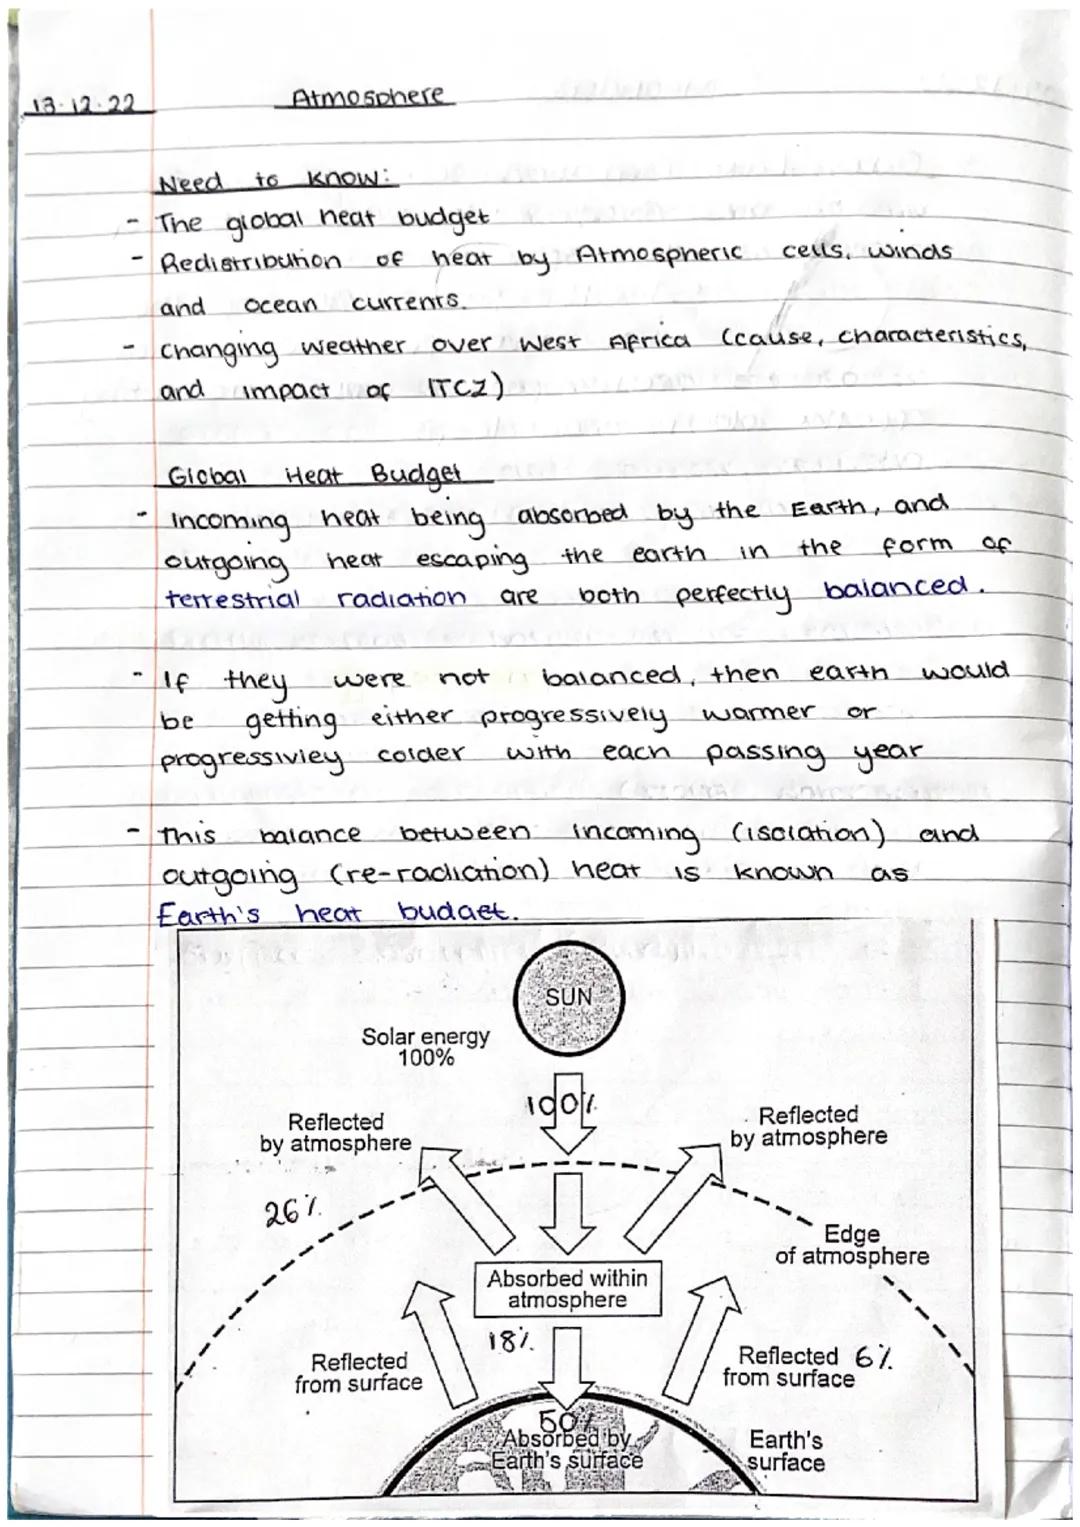 13.12.22
Atmosphere
Need to know:
- The global heat budget
- Redistribution of heat by Atmospheric cells, winds
and ocean currents.
- Changing weather over West Africa (cause, characteristics,
and impact of ITCZ)
Global Heat Budget
- incoming heat being absorbed by the Earth, and
outgoing heat escaping the earth in the form of
terrestrial radiation are both perfectly balanced.
- If they were not balanced, then earth would
be getting either progressively warmer or
progressiviey colder with each passing year
- This balance between incoming (isolation) and
outgoing (re-radiation) heat is known as
Earth's heat budget.
SUN
Solar energy
100%
100%
Reflected
by atmosphere
Reflected
by atmosphere
26%
Edge
of atmosphere
Absorbed within
atmosphere
18%
Reflected
from surface
Reflected 6%
from surface
50%
Absorbed by
Earth's surface
Earth's
surface